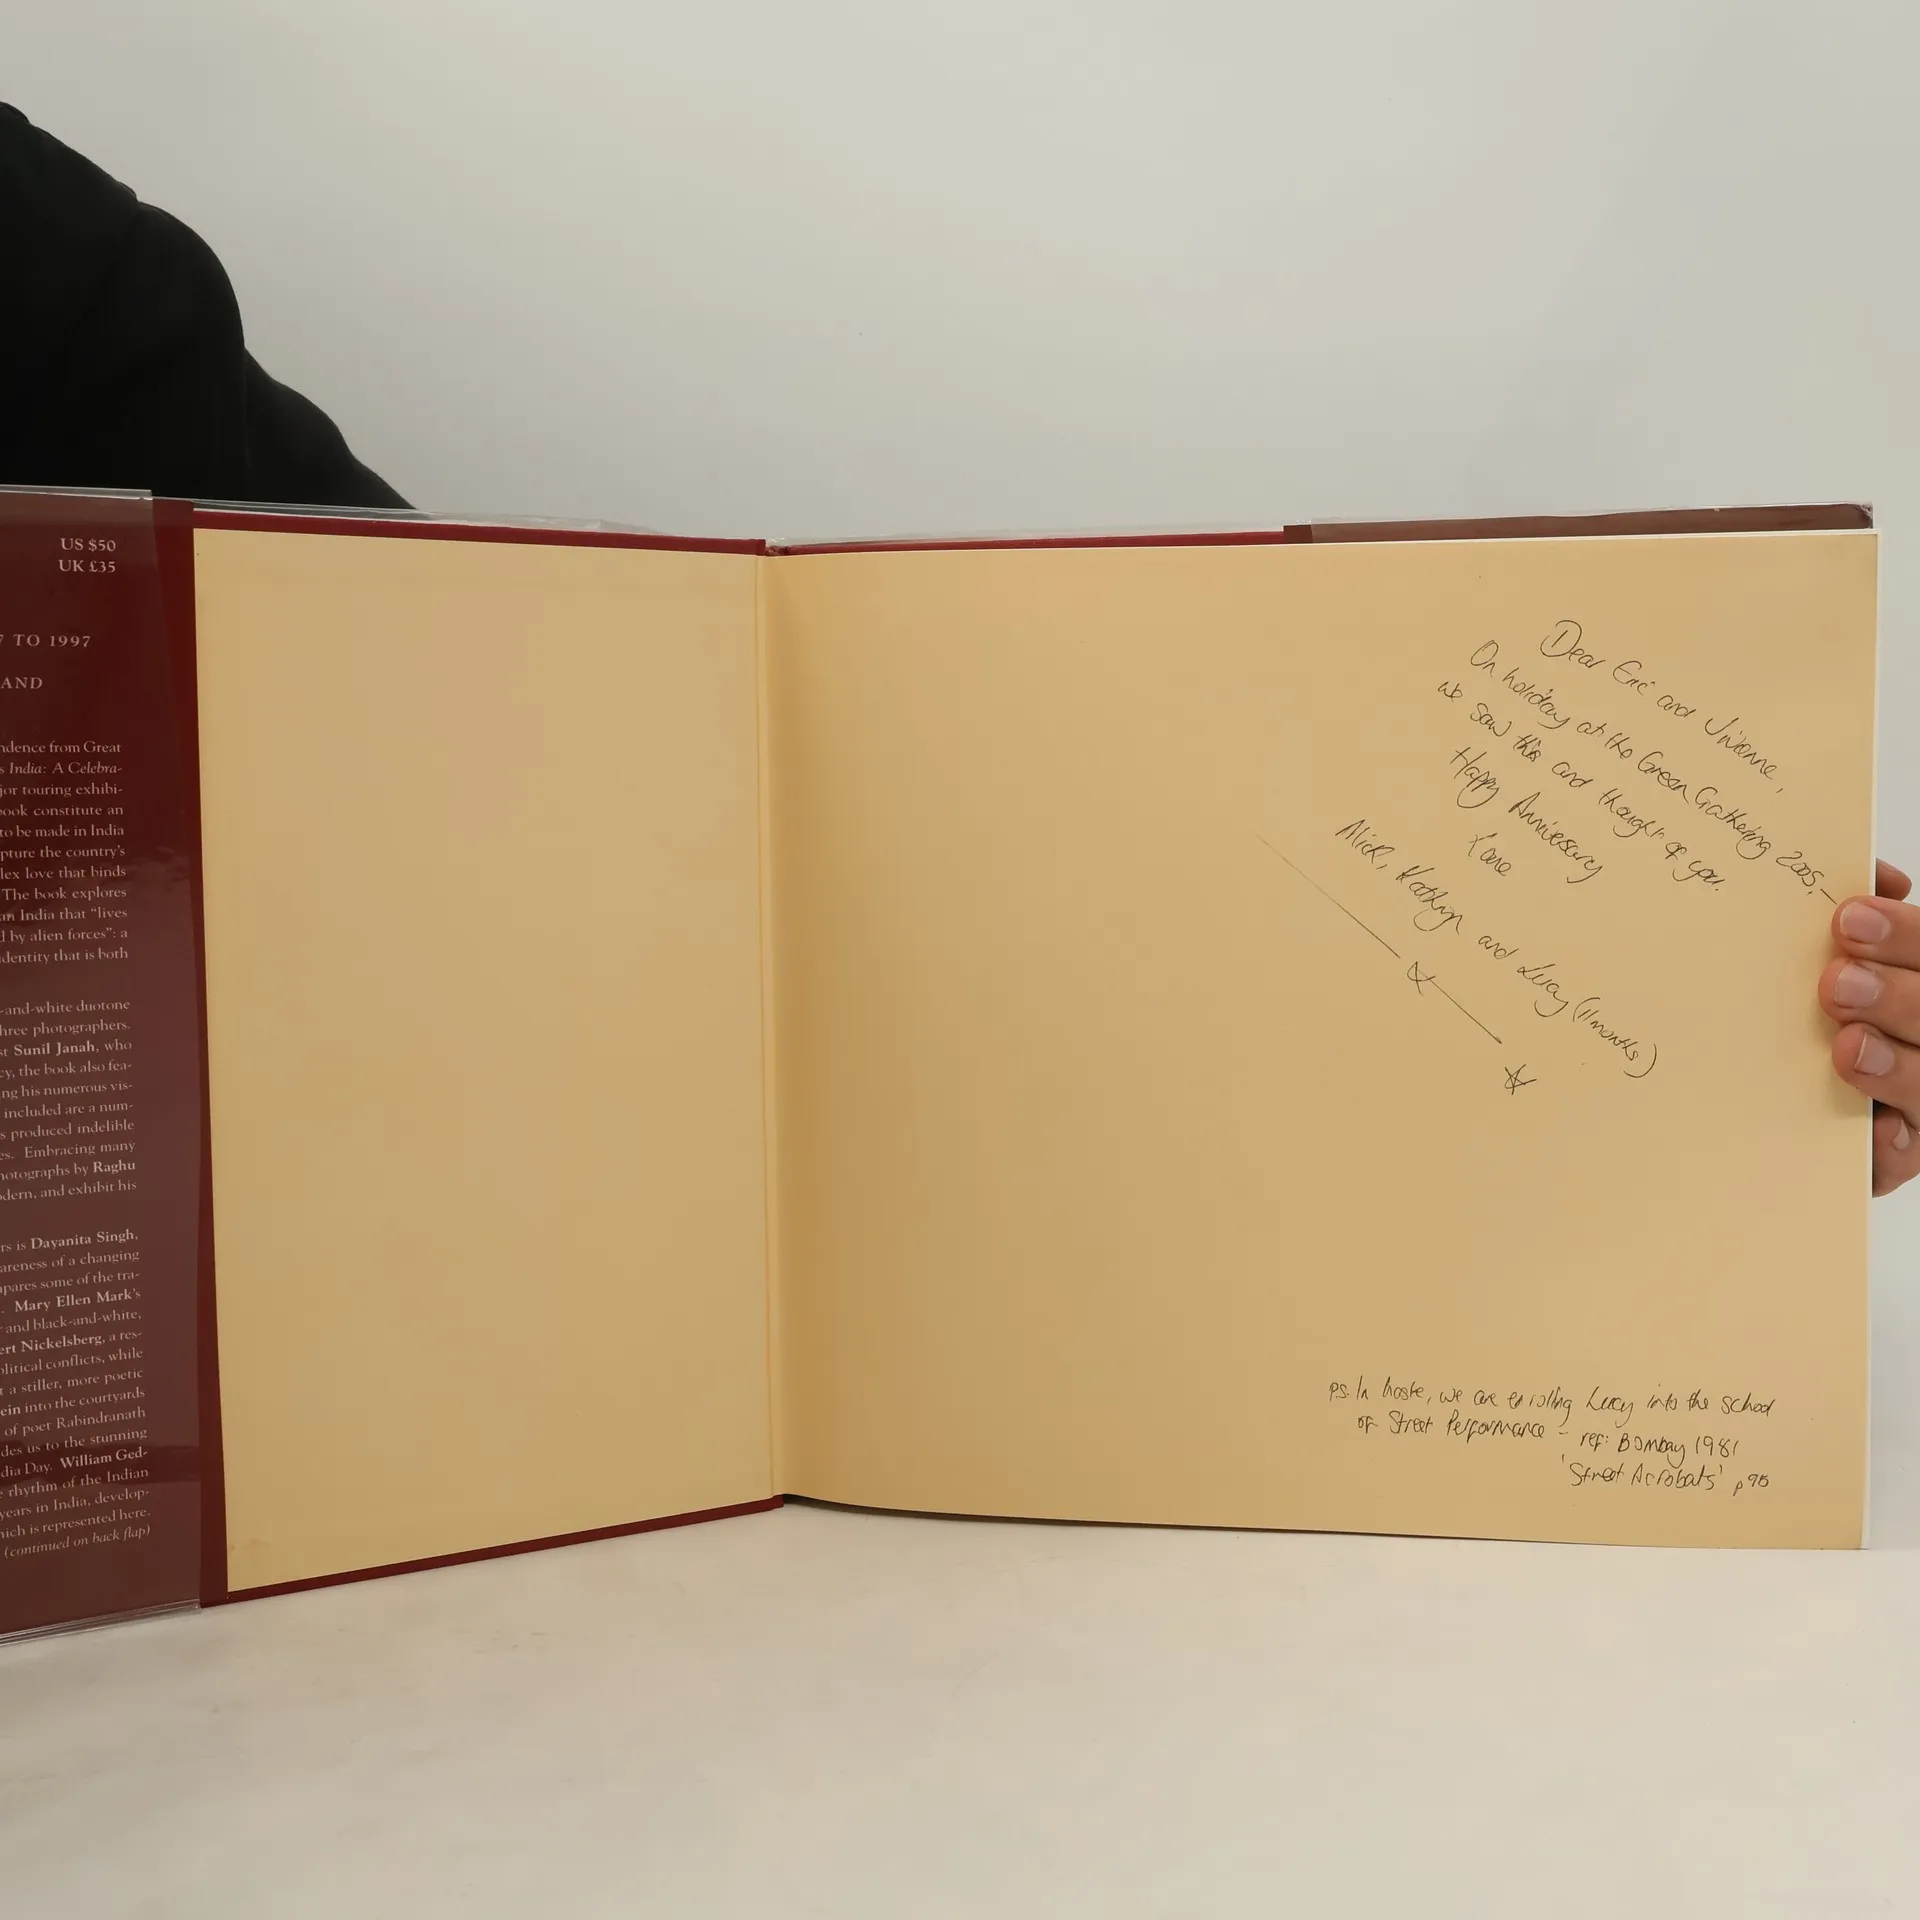 US $50
UK £35
7 TO 1997
AND
ndence from Great
s India: A Celebra-
jor touring exhibi-
book constitute an
to be made in India
pture the country's
lex love that binds
The book explores
an India that "lives
d by alien forces": a
identity that is both
-and-white duotone
hree photographers.
st Sunil Janah, who
cy, the book also fea-
ng his numerous vis-
included are a num-
s produced indelible
es. Embracing many
hotographs by Raghu
odern, and exhibit his
rs is Dayanita Singh,
areness of a changing
mpares some of the tra-
. Mary Ellen Mark's
r and black-and-white,
ert Nickelsberg, a res-
olitical conflicts, while
t a stiller, more poetic
ein into the courtyards
of poet Rabindranath
des us to the stunning
dia Day. William Ged-
e rhythm of the Indian
years in India, develop-
hich is represented here.
(continued on back flap)
Dear Eric and Vivienne,
On holiday at the Green Gathering 2005,
we saw this and thought of you.
Happy Anniversary
Love
Mick, Kathryn and Lucy (11months)
ps. In haste, we are enrolling Lucy into the school
of Street Performance - ref: Bombay 1981
'Street Acrobats' p